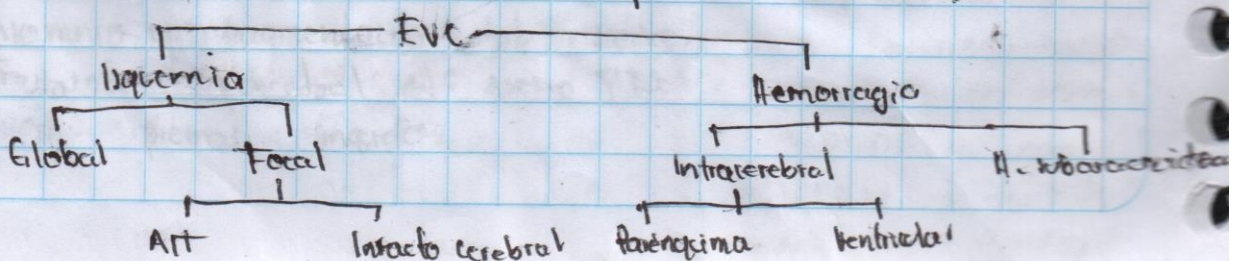 EVC
Isquemia Hemorragia
Global Focal Intracerebral H. subaracnoidea
AIT Infarto cerebral Parénquima Ventricular